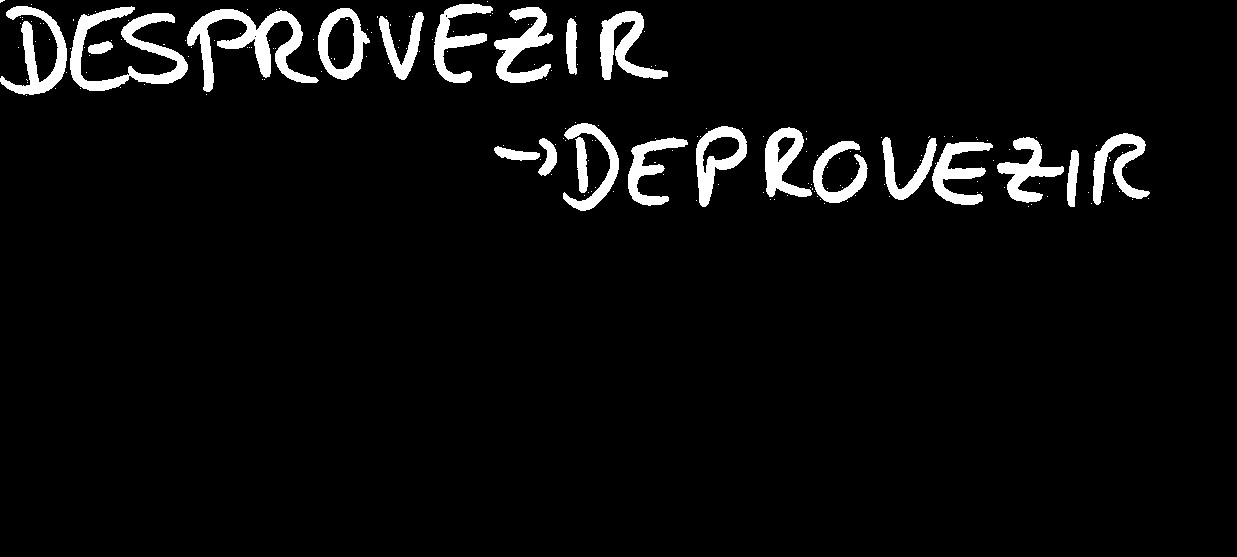 DESPROVEZIR
→DEPROVEZIR